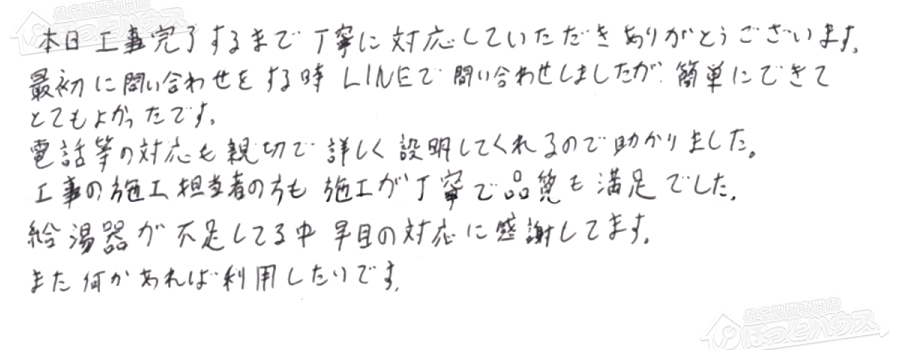 本日工事完了するまで丁寧に対応していただきありがとうございます。
最初に問い合わせをする時LINEで問い合わせしましたが、簡単にできて
とてもよかったです。
電話等の対応も親切で詳しく説明してくれるので助かりました。
工事の施工担当者の方も施工が丁寧で品質も満足でした。
給湯器が不足してる中早目の対応に感謝してます。
また何かあれば利用したいです。
ほっとハウス
ほっとハウス